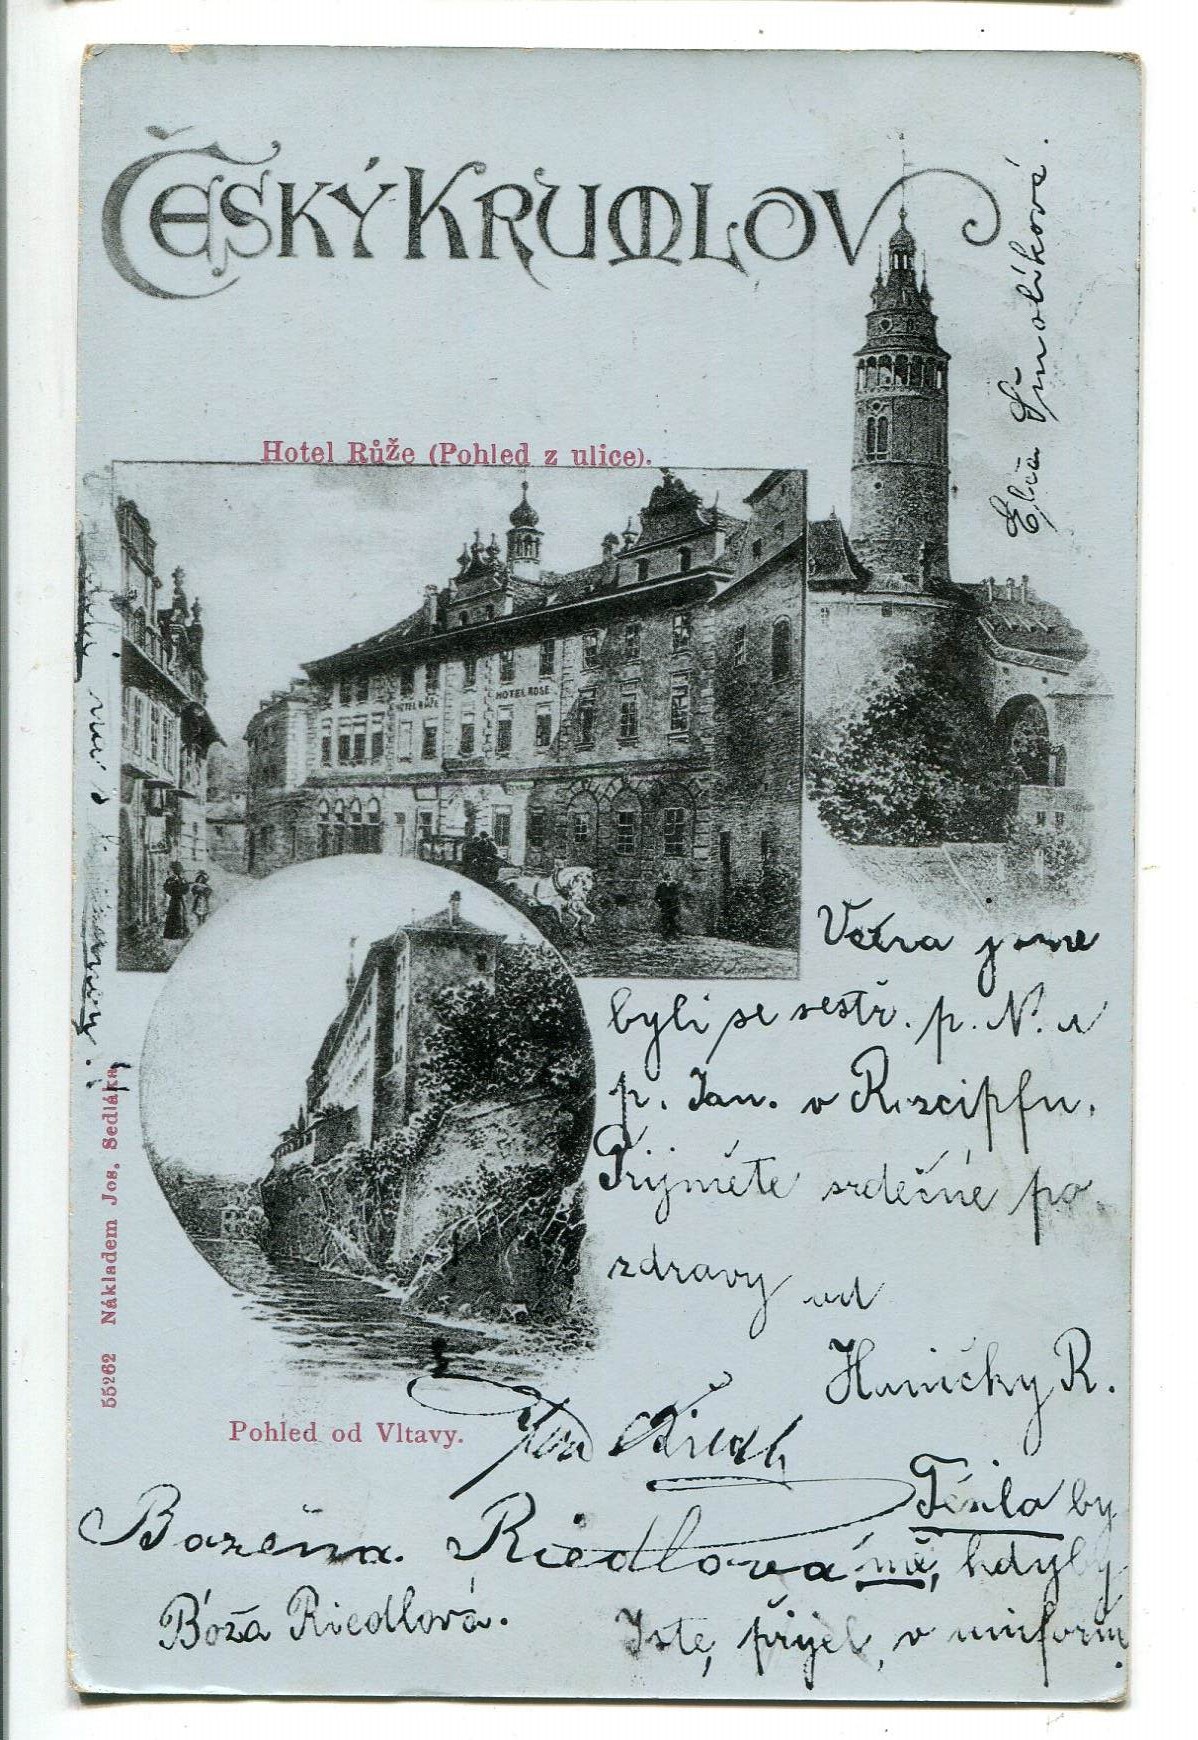 ČESKÝ KRUMLOV
Hotel Růže (Pohled z ulice).
HOTEL RŮŽE
HOTEL ROSE
Včera jsme
byli se sestř. p. N. a
p. Jan. v
Přijměte srdečné po
zdravy od
Haničky R.
Pohled od Vltavy.
55262 Nákladem Jos. Sedláka
Božena Riedlova
Bóža Riedlová.
Těšila by
mě, kdyby
Jste, přijel, v uniform.
Ela Smolíková.